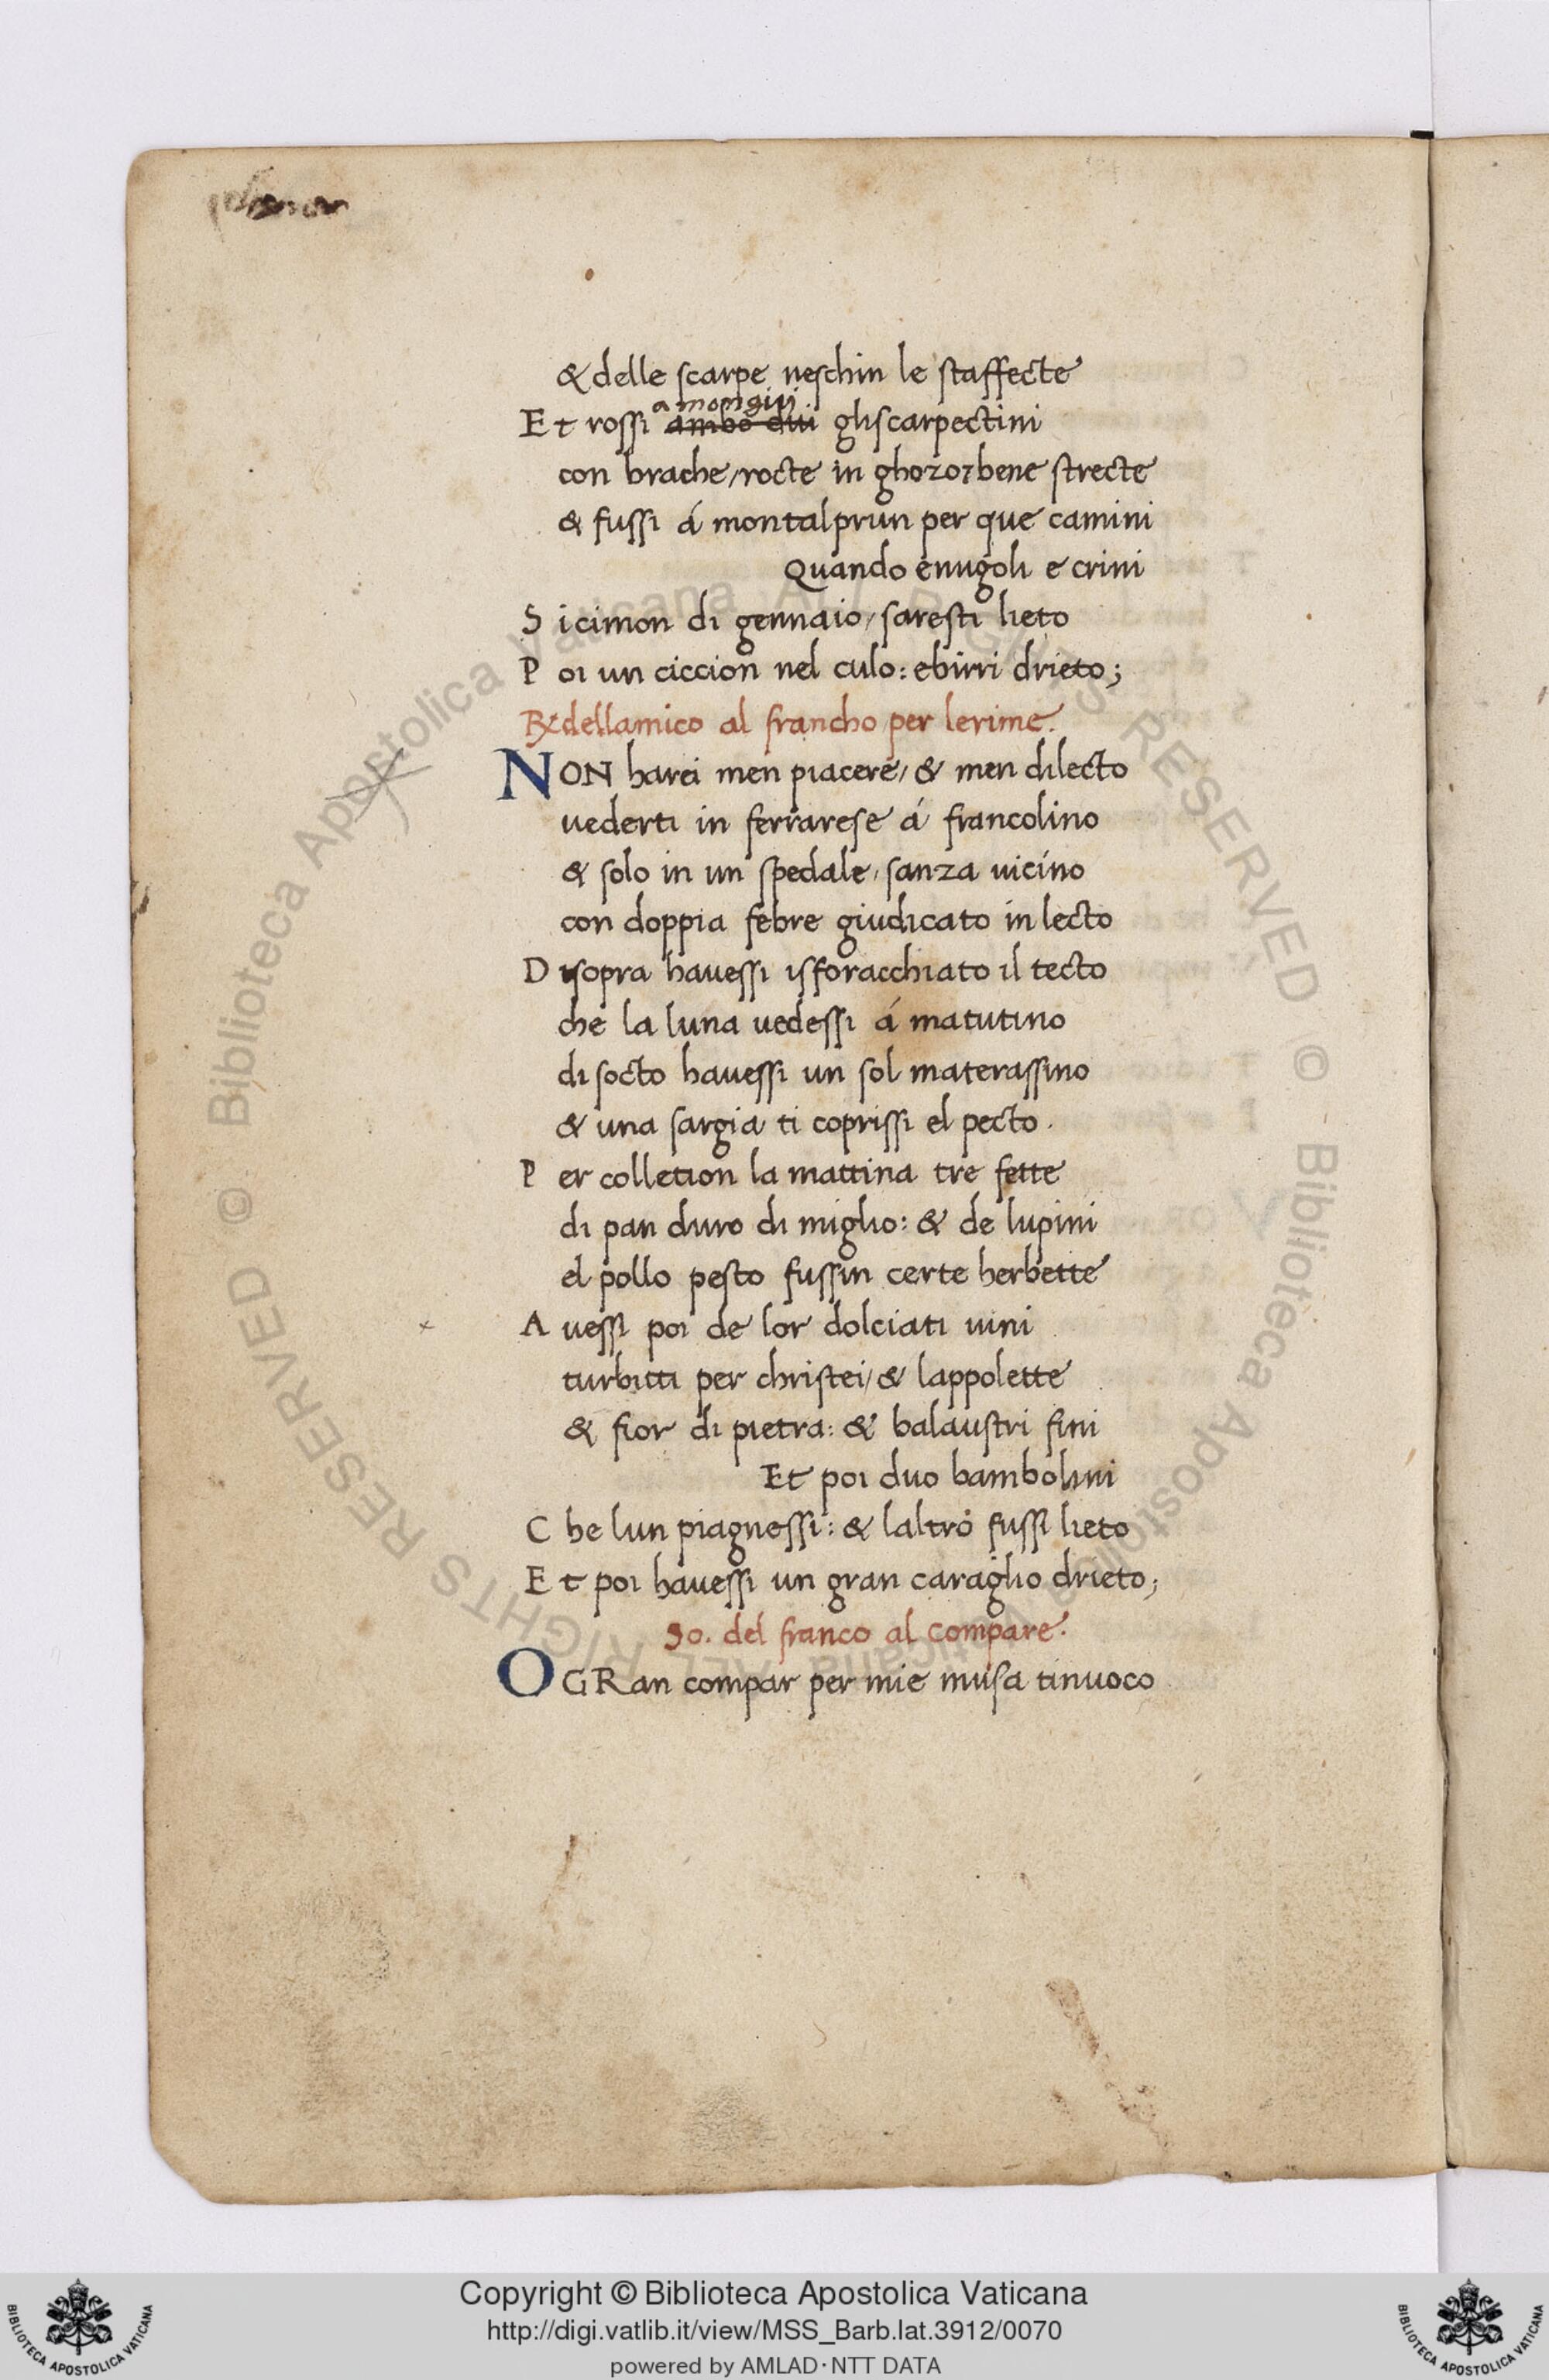 & delle scarpe neschin le staffecte
a mongivi
Et rossi ambo dui gliscarpectini
con brache/rocte in ghozo/bene strecte
& fussi á montalprun per que camini
Quando enugoli e crini
Sicimon di gennaio/saresti lieto
Poi un ciccion nel culo: ebirri drieto;
R dellamico al francho per lerime.
NON harei men piacere/& men dilecto
uederti in ferrarese á francolino
& solo in un spedale/sanza uicino
con doppia febre giudicato in lecto
Disopra hauessi isforacchiato il tecto
che la luna uedessi á matutino
di socto hauessi un sol materassino
& una sargia ti coprissi el pecto.
Per colletion la mattina tre fette
di pan duro di miglio: & de lupini
el pollo pesto fussin certe herbette
Auessi poi de lor dolciati uini
turbitti per christei/& lappolette
& fior di pietra: & balaustri fini
Et poi duo bambolini
Che lun piagnessi: & laltro fussi lieto
Et poi hauessi un gran caraglio drieto;
So. del franco al compare.
OGRan compar per mie musa tinuoco
Copyright © Biblioteca Apostolica Vaticana
http://digi.vatlib.it/view/MSS_Barb.lat.3912/0070
powered by AMLAD·NTT DATA
BIBLIOTECA APOSTOLICA VATICANA
BIBLIOTECA APOSTOLICA VATICANA
© Biblioteca Apostolica Vaticana ALL RIGHTS RESERVED © Biblioteca Apostolica Vaticana ALL RIGHTS RESERVED